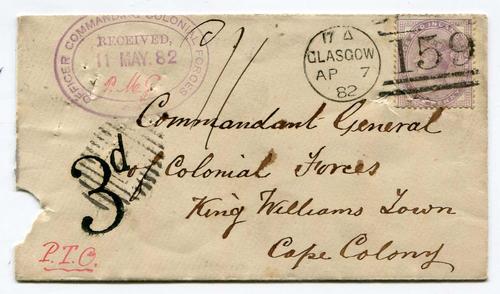 OFFICER COMMANDING COLONIAL FORCES
RECEIVED,
11 MAY. 82
P.M.G.
17 A
GLASGOW
AP 7
82
159
Commandant General
of Colonial Forces
King Williams Town
Cape Colony
3d
P.T.O.